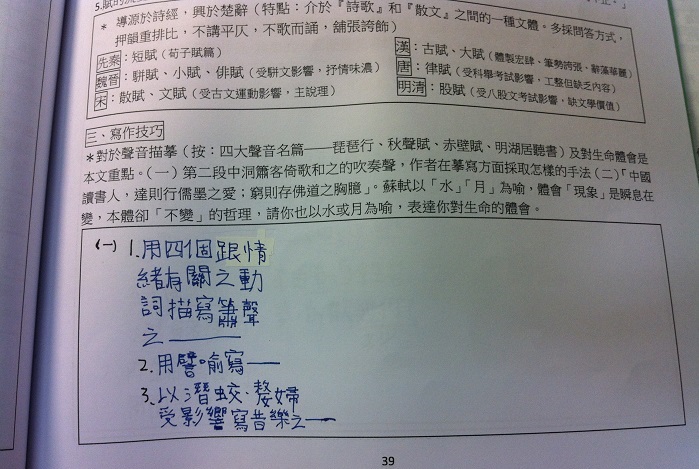 5.賦的流
* 導源於詩經，興於楚辭（特點：介於『詩歌』和『散文』之間的一種文體。多採問答方式，
押韻重排比，不講平仄，不歌而誦，舖張誇飾）
先秦：短賦（荀子賦篇）
漢：古賦、大賦（體製宏肆、筆勢誇張、辭藻華麗）
魏晉：駢賦、小賦、俳賦（受駢文影響，抒情味濃）
唐：律賦（受科舉考試影響，工整但缺乏內容）
宋：散賦、文賦（受古文運動影響，主說理）
明清：股賦（受八股文考試影響，缺文學價值）
三、寫作技巧
*對於聲音描摹（按：四大聲音名篇——琵琶行、秋聲賦、赤壁賦、明湖居聽書）及對生命體會是
本文重點。（一）第二段中洞簫客倚歌和之的吹奏聲，作者在摹寫方面採取怎樣的手法（二）「中國
讀書人，達則行儒墨之愛；窮則存佛道之胸臆」。蘇軾以「水」「月」為喻，體會「現象」是瞬息在
變，本體卻「不變」的哲理，請你也以水或月為喻，表達你對生命的體會。
(一) 1.用四個跟情
緒有關之動
詞描寫簫聲
之———
2.用譬喻寫——
3.以潛蛟、嫠婦
受影響寫音樂之——
39